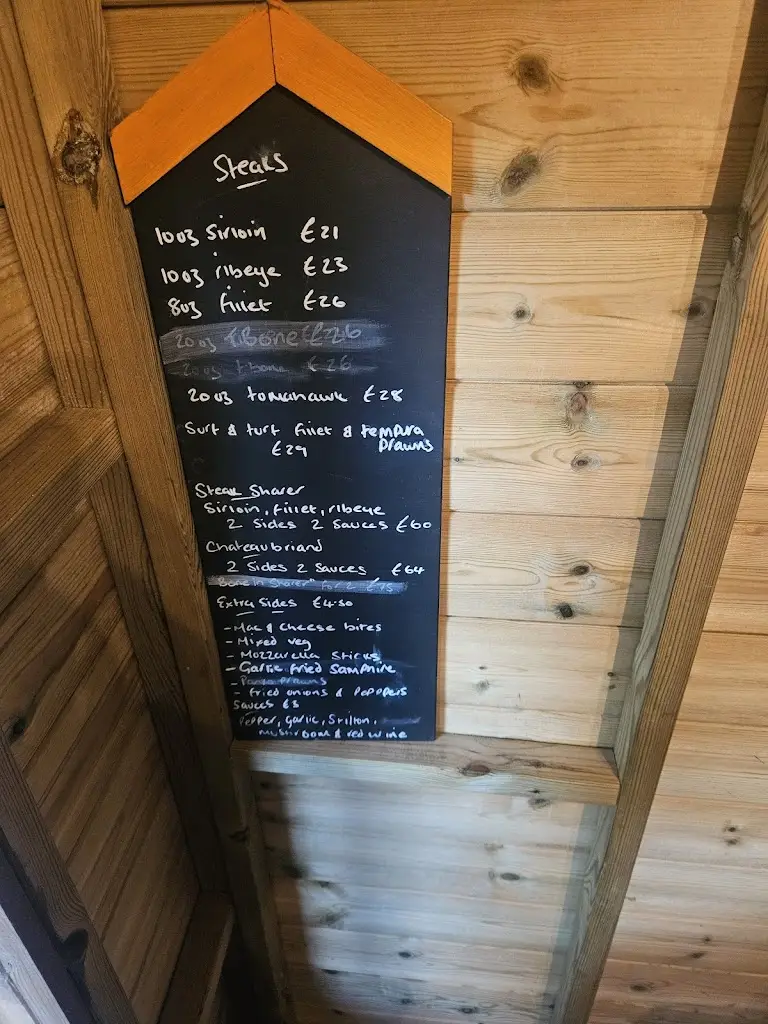 Steaks
10oz Sirloin £21
10oz ribeye £23
8oz fillet £26
20oz tBone £26
20oz tbone £26
20oz tomahawk £28
Surf & turf fillet & tempura
prawns
£29
Steak Sharer
Sirloin, fillet, ribeye
2 Sides 2 Sauces £60
Chateaubriand
2 Sides 2 Sauces £64
Bone In Sharer for 2 £75
Extra Sides £4.50
- Mac & Cheese bites
- Mixed veg
- Mozzarella Sticks
- Garlic fried Samphire
- Panko Prawns
- fried onions & Peppers
Sauces £3
Pepper, Garlic, Stilton,
Mushroom & red wine